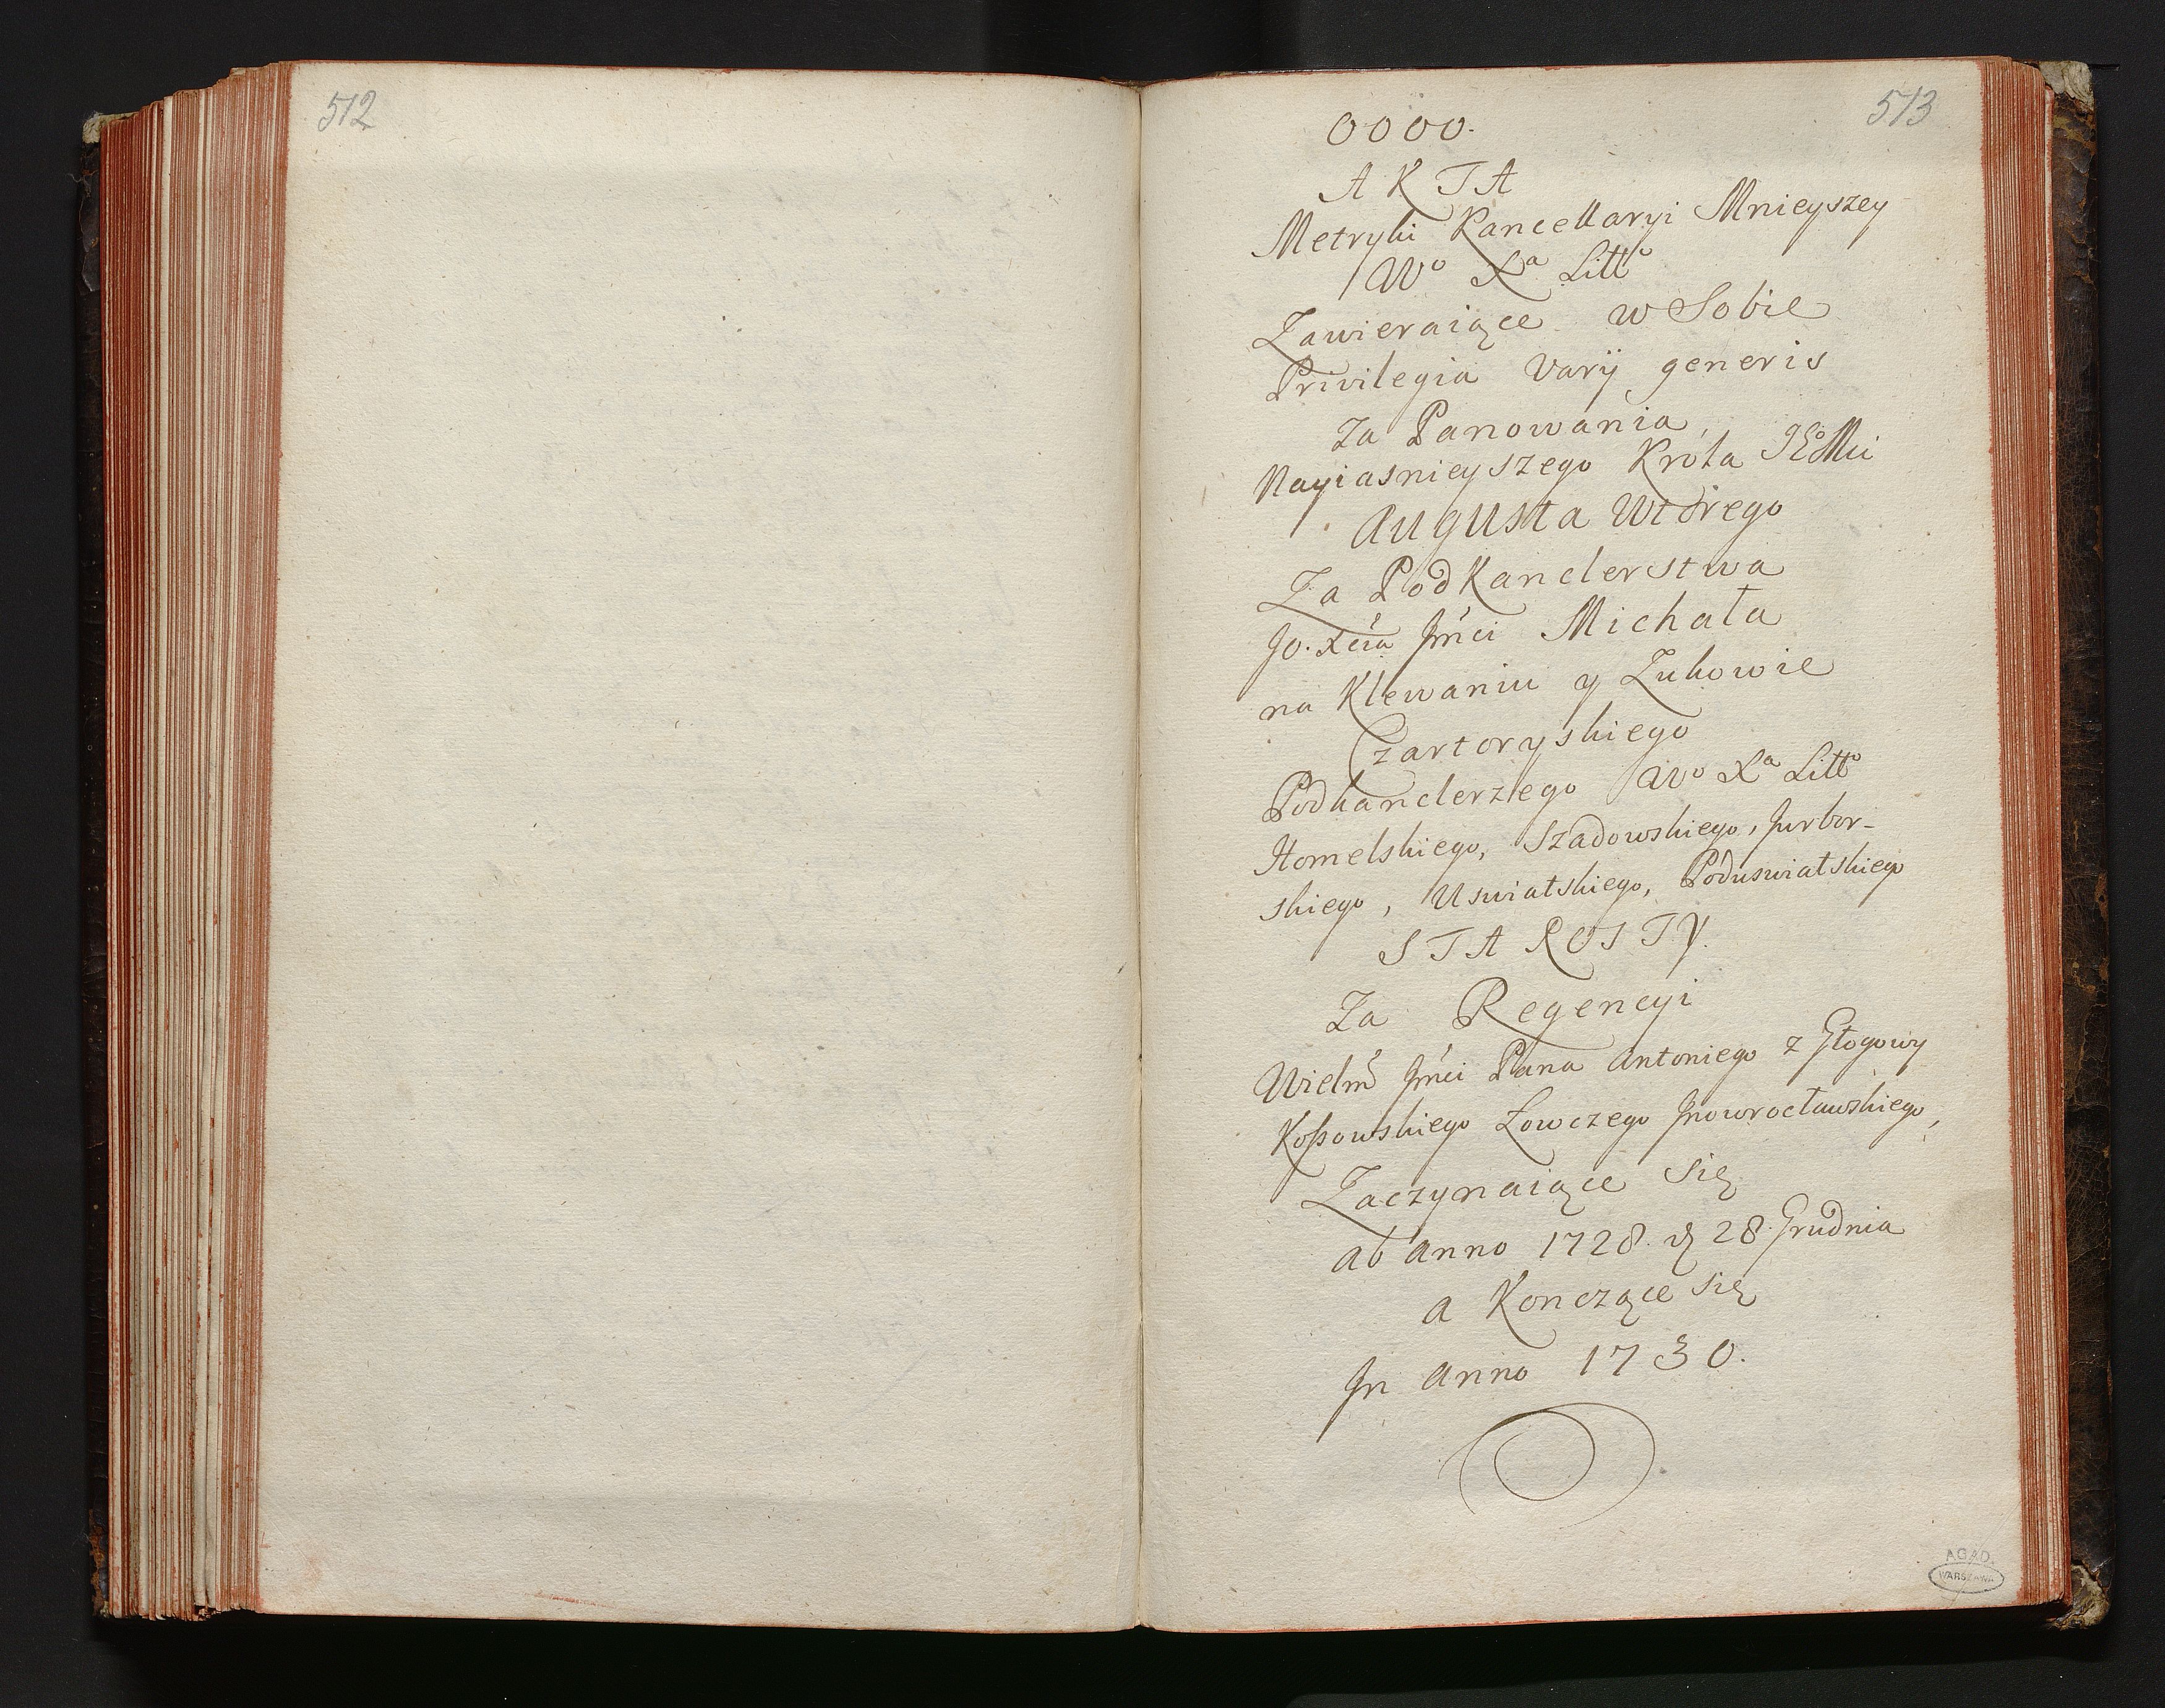 512
513
0000.
AKTA
Metryki Kancellaryi Mnieyszey
Wº Xª Littº
Zawieraiące w Sobie
Privilegia Varij generis
Za Panowania
Nayiasnieyszego Króla JEºMci
Augusta Wtórego
Za PodKanclerstwa
JO. Xcia Jmci Michała
na Klewaniu y Zukowie
Czartoryskiego
Podkanclerzego Wº Xª Littº
Homelskiego, Szadowskiego, Jurbor-
skiego, Uswiatskiego, Poduswiatskiego
STAROSTY.
Za Regencyi
Wielmº Jmci Pana Antoniego z Głogowy
Koſsowskiego Łowczego Jnowrocławskiego,
Zaczynaiące Się
ab Anno 1728. d 28. Grudnia
a Konczące się
Jn Anno 1730.
AGAD.
WARSZAWA